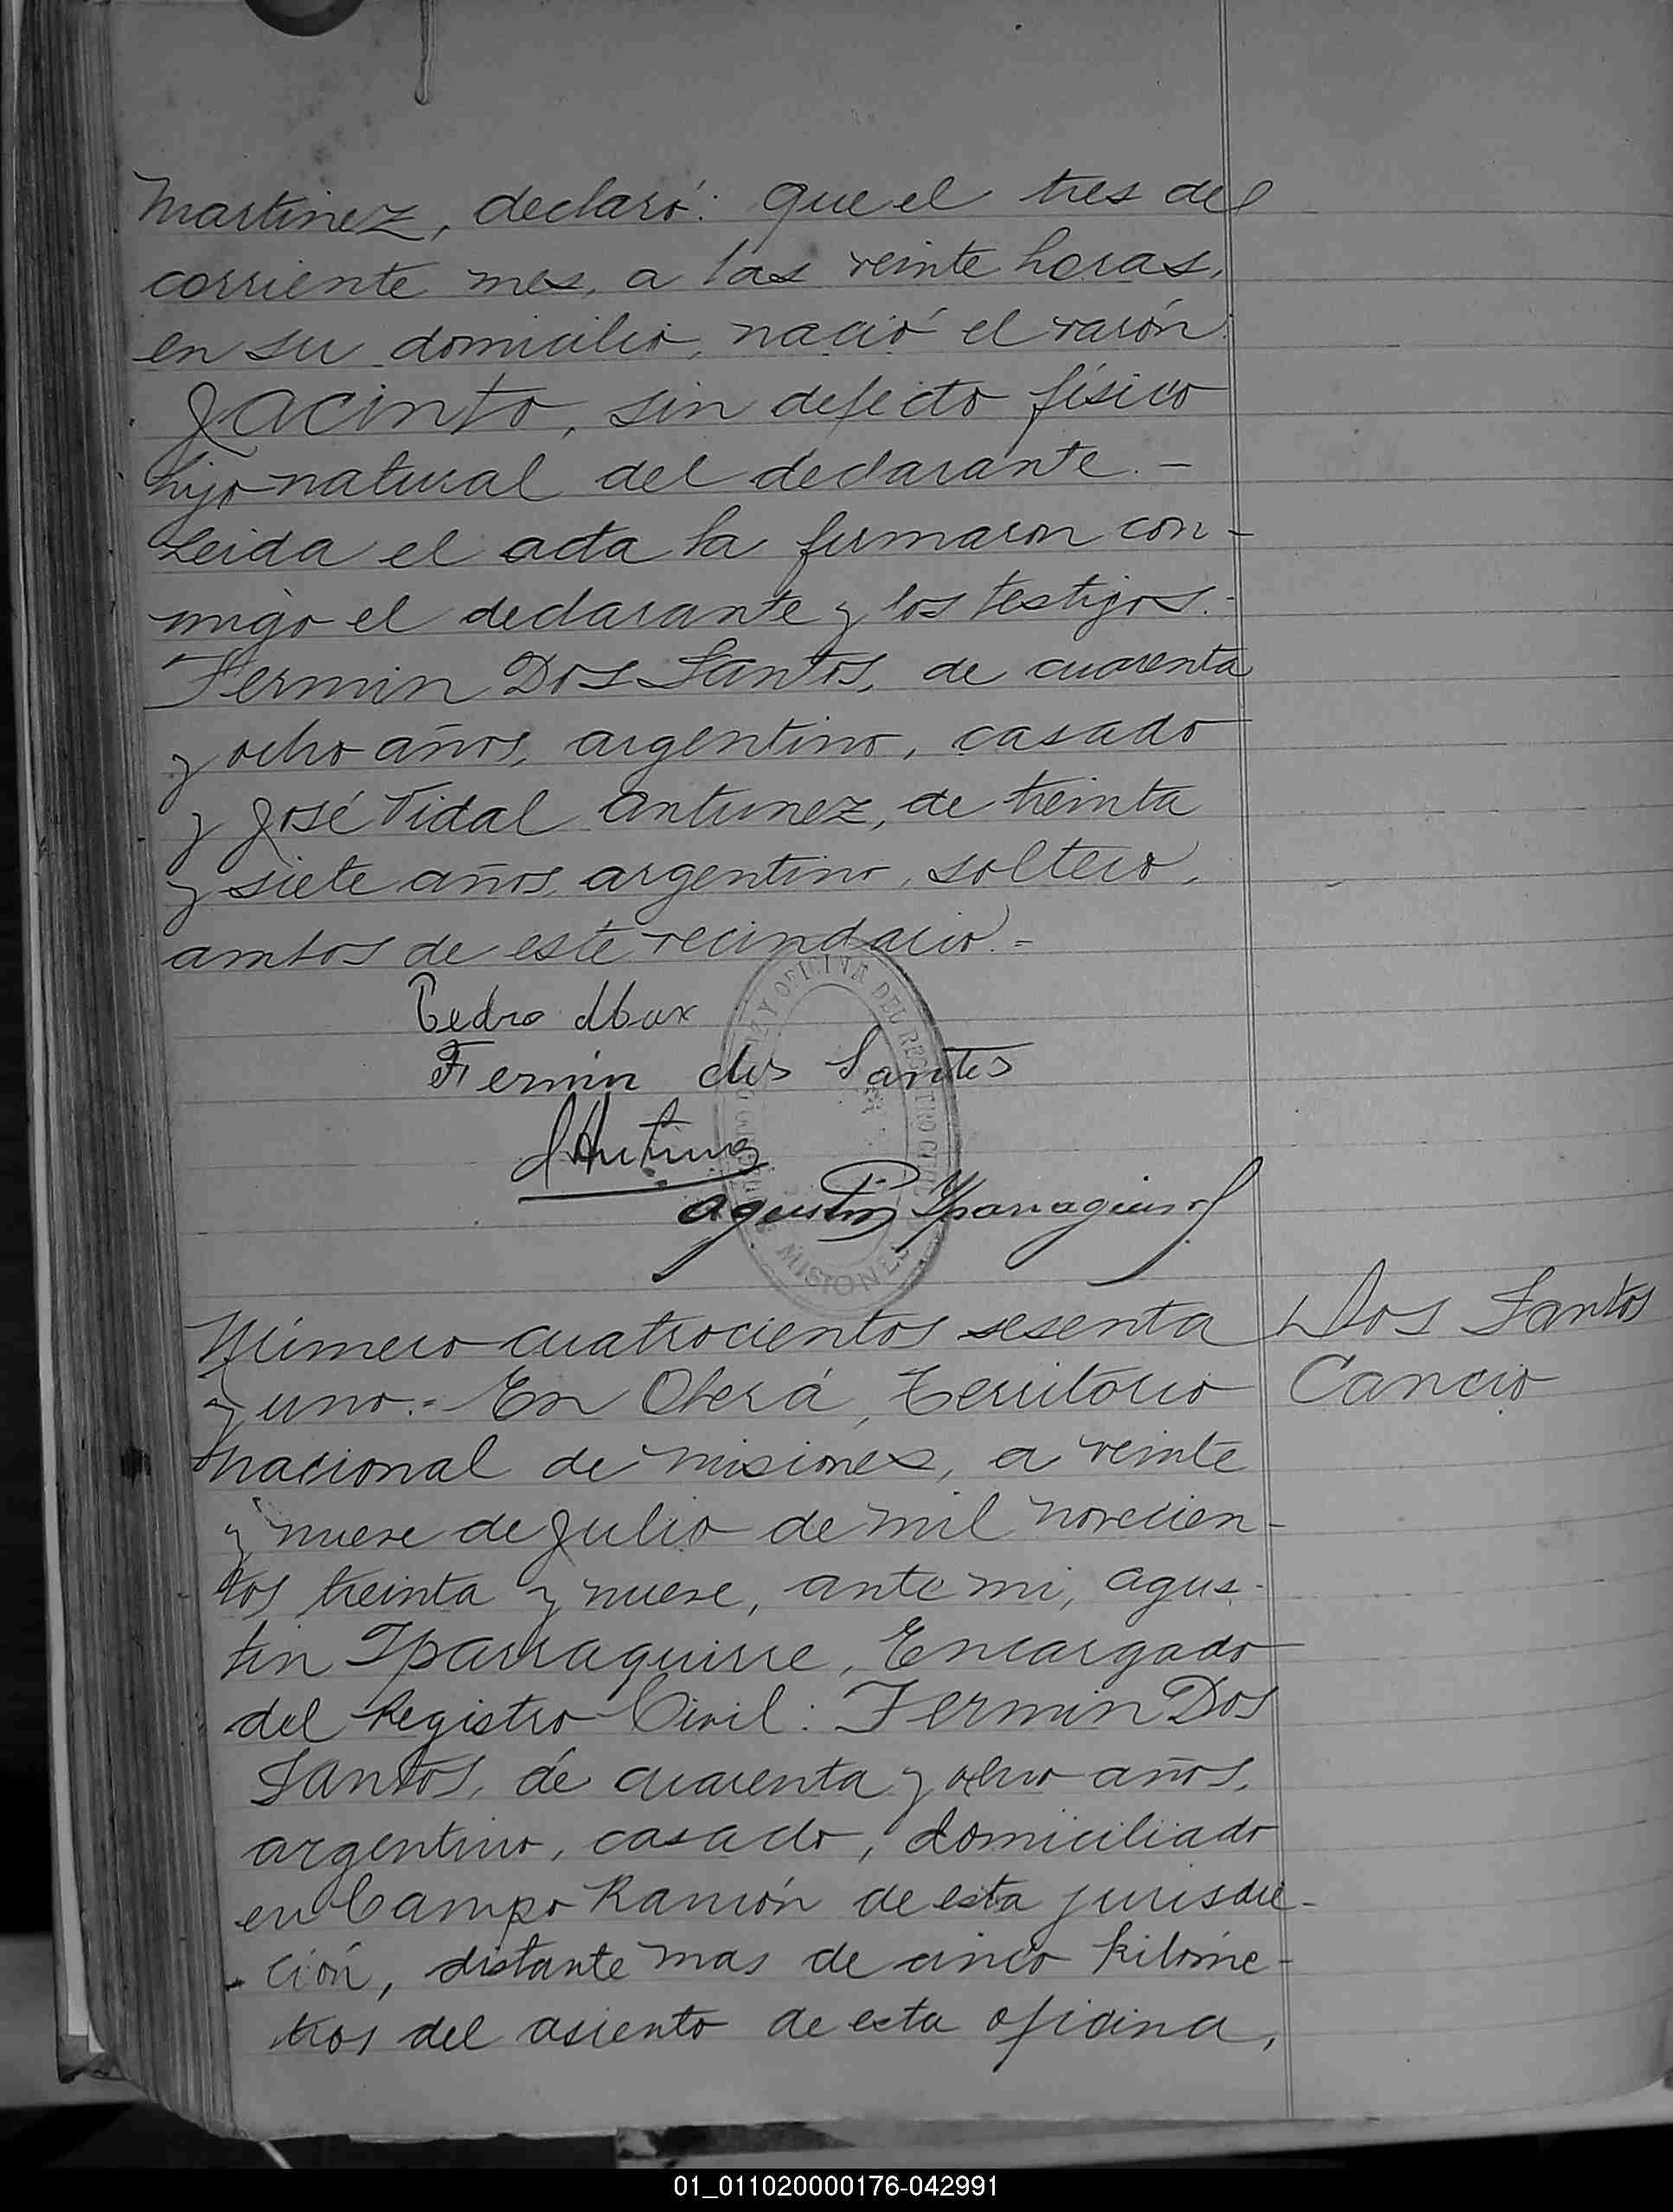 Martinez, declaró: que el tres del
corriente mes, a las veinte horas,
en su domicilio, nació el varón
JACINTO, sin defecto físico
hijo natural del declarante.-
Leida el acta la firmaron con-
migo el declarante y los testigos:
Fermin Dos Santos, de cuarenta
y ocho años, argentino, casado
y José Vidal Antunez, de treinta
y siete años, argentino, soltero,
ambos de este vecindario.=
Pedro
Fermin dos Santos
Agustin Yparraguirre
OFICINA DEL REGISTRO CIVIL
MISIONES
Número cuatrocientos sesenta
y uno.= En Oberá, Territorio
Nacional de Misiones, a veinte
y nueve de Julio de mil novecien-
tos treinta y nueve, ante mi, Agus-
tin Iparraguirre, Encargado
del Registro Civil: Fermin Dos
Santos, de cuarenta y ocho años,
argentino, casado, domiciliado
en Campo Ramón de esta jurisdic-
ción, distante mas de cinco kilóme-
tros del asiento de esta oficina,
Dos Santos
Cancio
01_011020000176-042991